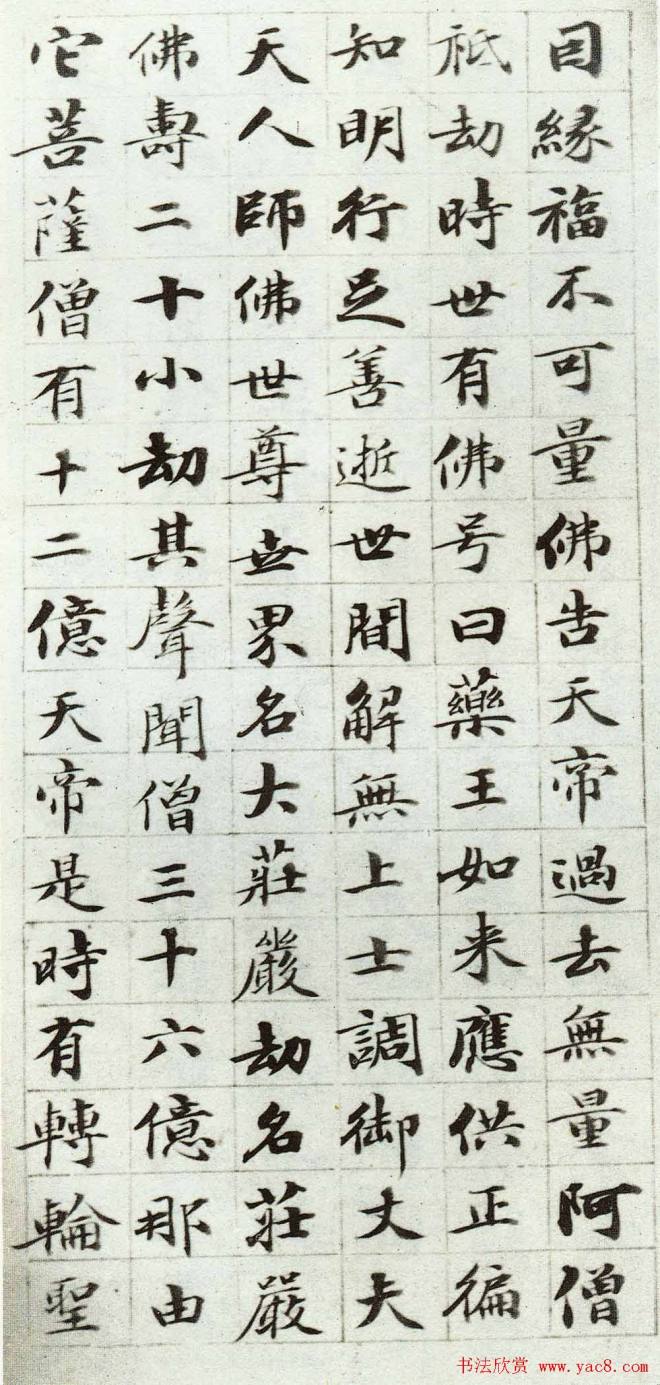 因緣福不可量佛告天帝過去無量阿僧
祇劫時世有佛号曰藥王如来應供正徧
知明行足善逝世間解無上士調御丈夫
天人師佛世尊世界名大莊嚴劫名莊嚴
佛壽二十小劫其聲聞僧三十六億那由
它菩薩僧有十二億天帝是時有轉輪聖
书法欣赏 www.yac8.com